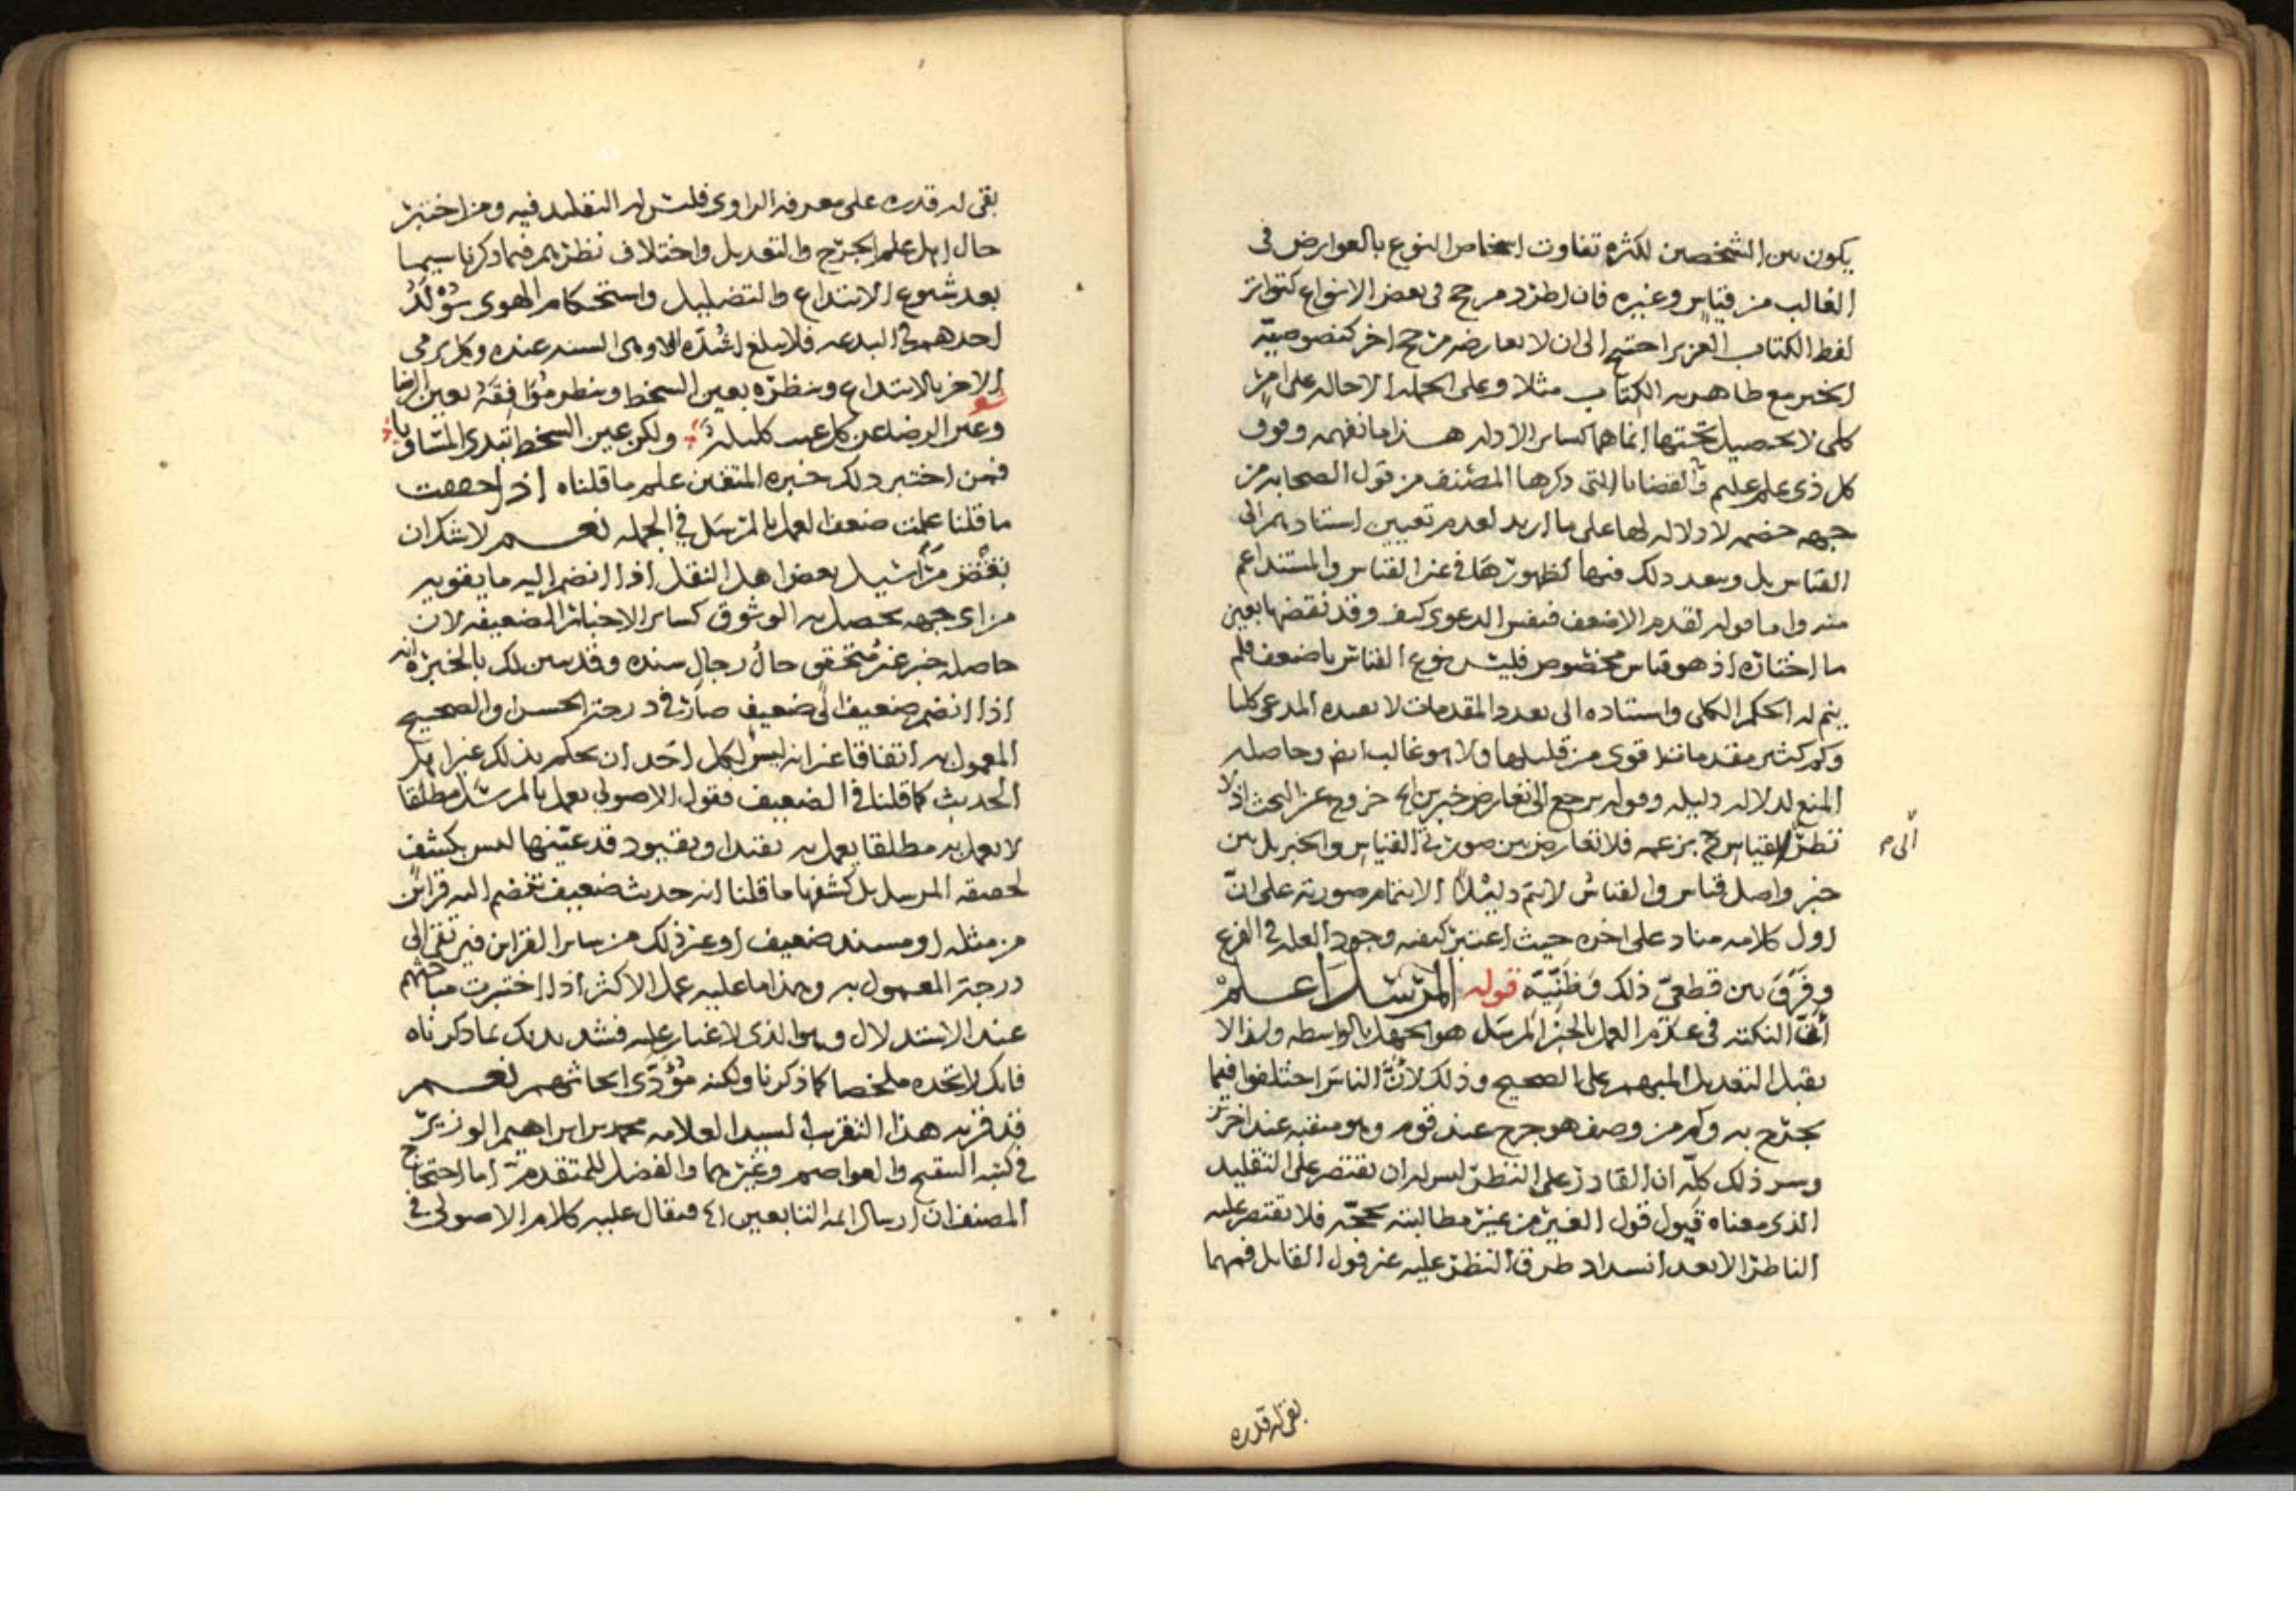 يكون بين الشخصين لكثرة تفاوت اشخاص النوع بالعوارض فى
الغالب من قياس وغيره فان اطرد مرجح فى بعض الانواع كتواتر
لفظ الكتاب العزيز احتيج الى ان لا يعارضه مرجح اخر كنصوصيّة
الخبر مع ظاهرية الكتاب مثلا وعلى الجملة الاحالة على امر
كلى لا تحصيل تحتها انما هما كساير الادلة هذا ما نفهمه وفوق
كل ذى علم عليم والقضايا التى ذكرها المصنف من قول الصحابة من
جهة خصمه لا دلالة لها على ما اريد لعدم تعيين استنادهم الى
القياس بل وبعد ذلك فيها لظهورها فى غير القياس والمستند اعم
منه واما قوله لقدم الاضعف فنفس الدعوى كيف وقد نقضها بعين
ما اختاره اذ هو قياس مخصوص فليس نوع القياس باضعف فلم
يتم له الحكم الكلى واستناده الى تعدد المقدمات لا يفيده المدعى كليا
وكم كثير مقدماته اقوى من قليلها ولا هو غالب ايضا وحاصله
المنع لدلالة دليله وقوله يرجع الى تعارض خبرين الخ خروج عن البحث اذ لا
نظر للقياس ح بزعمه فلا تعارض بين صورتى القياس والخبر بل بين
الى م
خبر واصل قياس والقياس لا يتم دليلاً الا بتمام صورته على انّ
اول كلامه مناد على اخره حيث اعتبر كيفية وجود العلة فى الفرع
وفَرَقَ بين قطعىّ ذلك وظَنّيّه قوله المرسل اعلم
أنّ النكتة فى عدم العمل بالخبر المرسل هو الجهل بالواسطه ولذا لا
يقبل التعديل المبهم على الصحيح وذلك لانّ الناس اختلفوا فيما
يجرّح به وكم من وصف هو جرح عند قوم وهو منقبه عند اخرين
وسر ذلك كلّه ان القادر على النظر ليس له ان يقتصر على التقليد
الذى معناه قبول قول الغير من غير مطالبته بحجّة فلا يقتصر عليه
الناظر الا بعد انسداد طرق النظر عليه غير قول القايل فمهما
بقى له قدره
بقى له قدره على معرفة الراوى فليس له التقليد فيه ومن اختبر
حال اهل علم الجرح والتعديل واختلاف نظرهم فيما ذكرنا سيما
بعد شيوع الابتداع والتضليل واستحكام الهوى يُوْلَدُ
احدهم فى البدعه فلا يبلغ اشدّه الا وهى السنه عنده وكل يرمى
الاخر بالابتداع وينظره بعين السخط وينظر مُوَافِقَهُ بعين الرضا
وعين الرضا عن كل عيب كليلة ولكن عين السخط تبدى المساويا
فمن اختبر ذلك خبرة المتقين علم ما قلناه اذا حققت
ما قلنا علمت ضعف العمل بالمرسل فى الجمله نعم لا شك ان
بعض مراسيل بعض اهل النقل اذا انضم اليه ما يقويه
من اى جهه يحصل به الوثوق كساير الاخبار الضعيفه لان
حاصله خبر غير مُتحقق حالُ رجال سنده وقد تبين لك بالخبرة انه
اذا انضم ضعيف الى ضعيف صار فى درجة الحسن والصحيح
المعمول به اتفاقا غير انه ليس لكل احد ان يحكم بذلك غير اهل
الحديث كما قلنا فى الضعيف فقول الاصولى يعمل بالمرسل مطلقا
لا يعمل به مطلقا يعمل به بقيد او بقيود قد عيّنها ليس بكشف
لحقيقة المرسل بل كشفها ما قلنا انه حديث ضعيف تنضم اليه قراين
من مثله او مسند ضعيف او غير ذلك من ساير القراين فيرتقى الى
درجة المعمول به وهذا ما عليه عمل الاكثر اذا اختبرت مباحثهم
عند الاستدلال وهو الذى لا غبار عليه فشد يديك بما ذكرناه
فانك لا تجده ملخصا كما ذكرنا ولكنه مُؤدّى ابحاثهم نعم
قد قربه هذا التقريب السيد العلامه محمد بن ابراهيم الوزير
فى كتبه التنقيح والعواصم وغيرهما والفضل للمتقدم اما احتجاج
المصنف ان ارسال ايمة التابعين الخ فيقال عليه كلام الاصولى فى